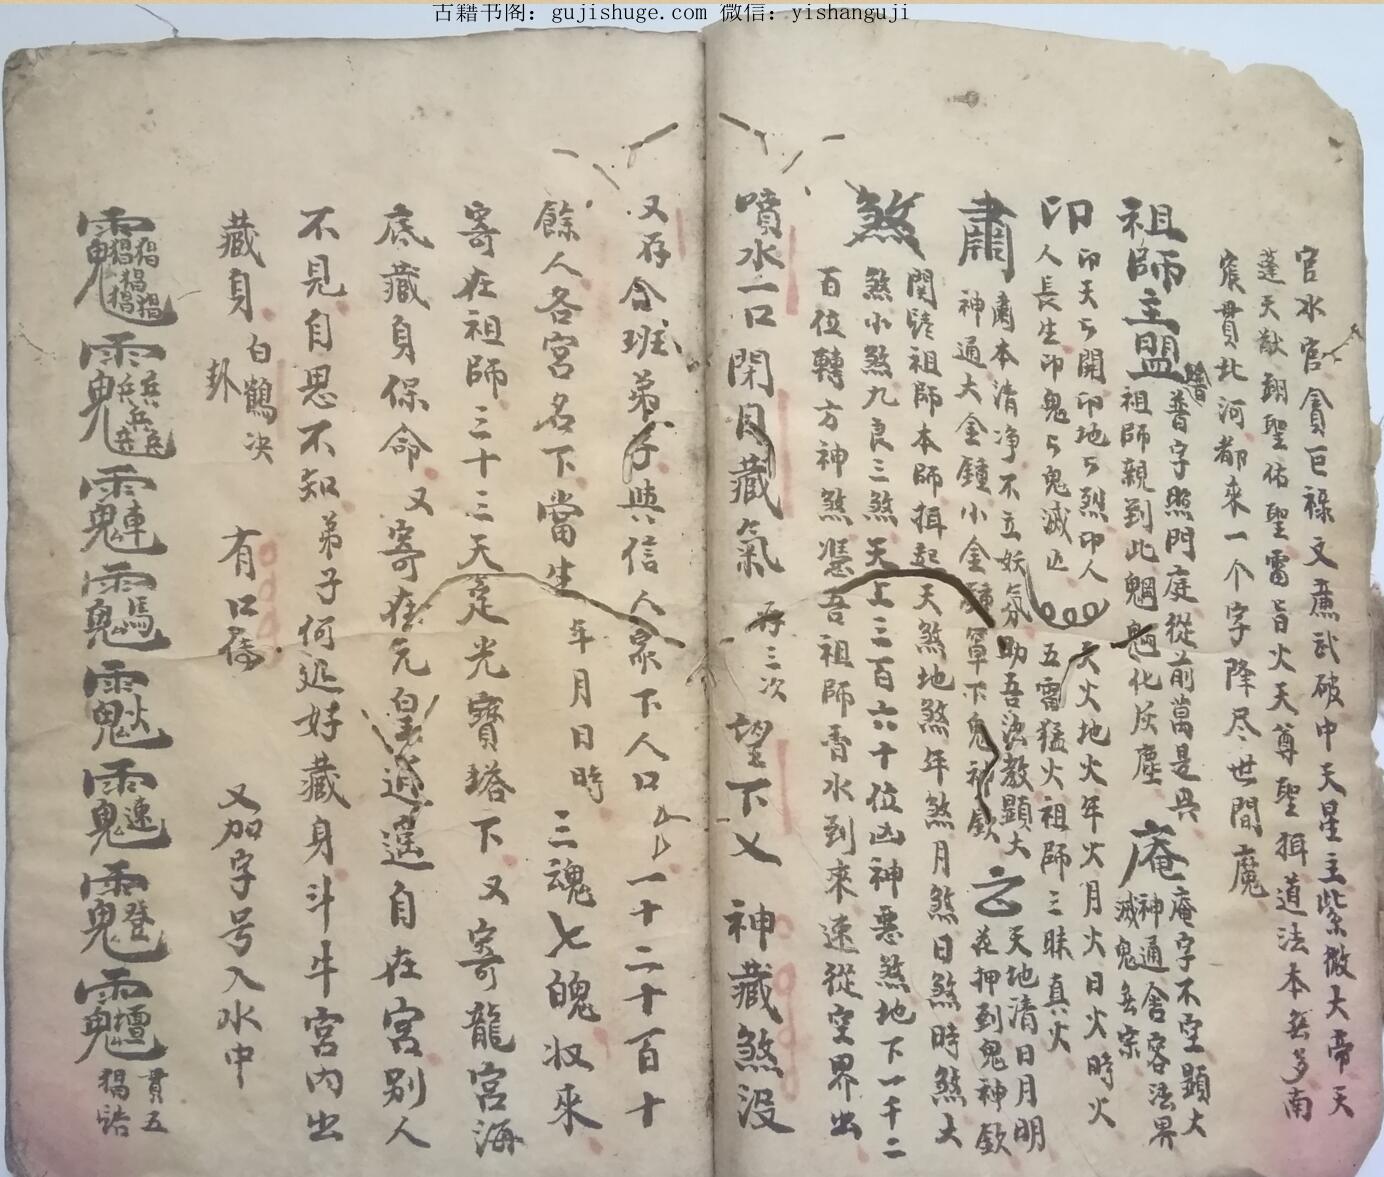 古籍书阁：gujishuge.com 微信：yishanguji
官水官貪巨祿文廉武破中天星主紫微大帝天
蓬天猷翊聖佑聖雷旨火天尊聖揖道法本無多南
宸貫北河都來一个字降尽世間魔
祖師主盟
普字照門庭從前萬是具
祖師親到此魍魎化灰塵
庵
庵字不空顯大
神通舍容法界
滅鬼無宗
印
印天ㄣ開印地ㄣ烈印人
人長生印鬼ㄣ鬼滅亡
天火地火年火月火日火時火
五雷猛火祖師三昧真火
肅
肅本清净不立妖氛助吾法教顯大
神通大金鐘小金鐘罩下鬼神欽
云
天地清日月明
花押到鬼神欽
煞
関啟祖師本師揖起天煞地煞年煞月煞日煞時煞大
煞小煞九良三煞天上三百六十位凶神惡煞地下一千二
百位轉方神煞憑吾祖師雪水到來速從空界出
噴水一口閉目藏氣
存三次
望下乂神藏煞没
又存合班弟子與信人家下人口
一十二十百十
餘人各宮名下當生
年月日時
三魂七魄收來
寄在祖師三十三天定光寶塔下又寄龍宮海
底藏身保命又寄在元皇逍遥自在宮别人
不見自思不知弟子何处好藏身斗牛宮内出
藏身
白鶴决
卦
有口傳
又加字号入水中
貫五
猖